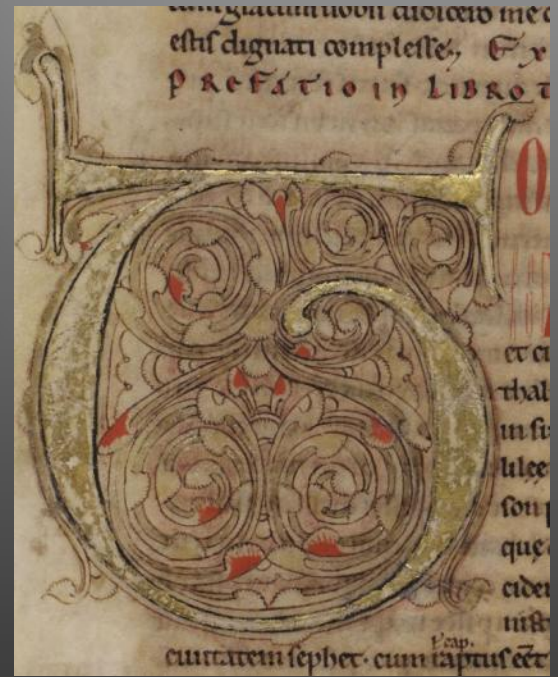 uobis me
estis dignati complesse, Ex
Prefatio in libro t
T O
et ci
thal
in su
lilee
son p
que
ciden
nist
ciuitatem sephet. cum captus eēt